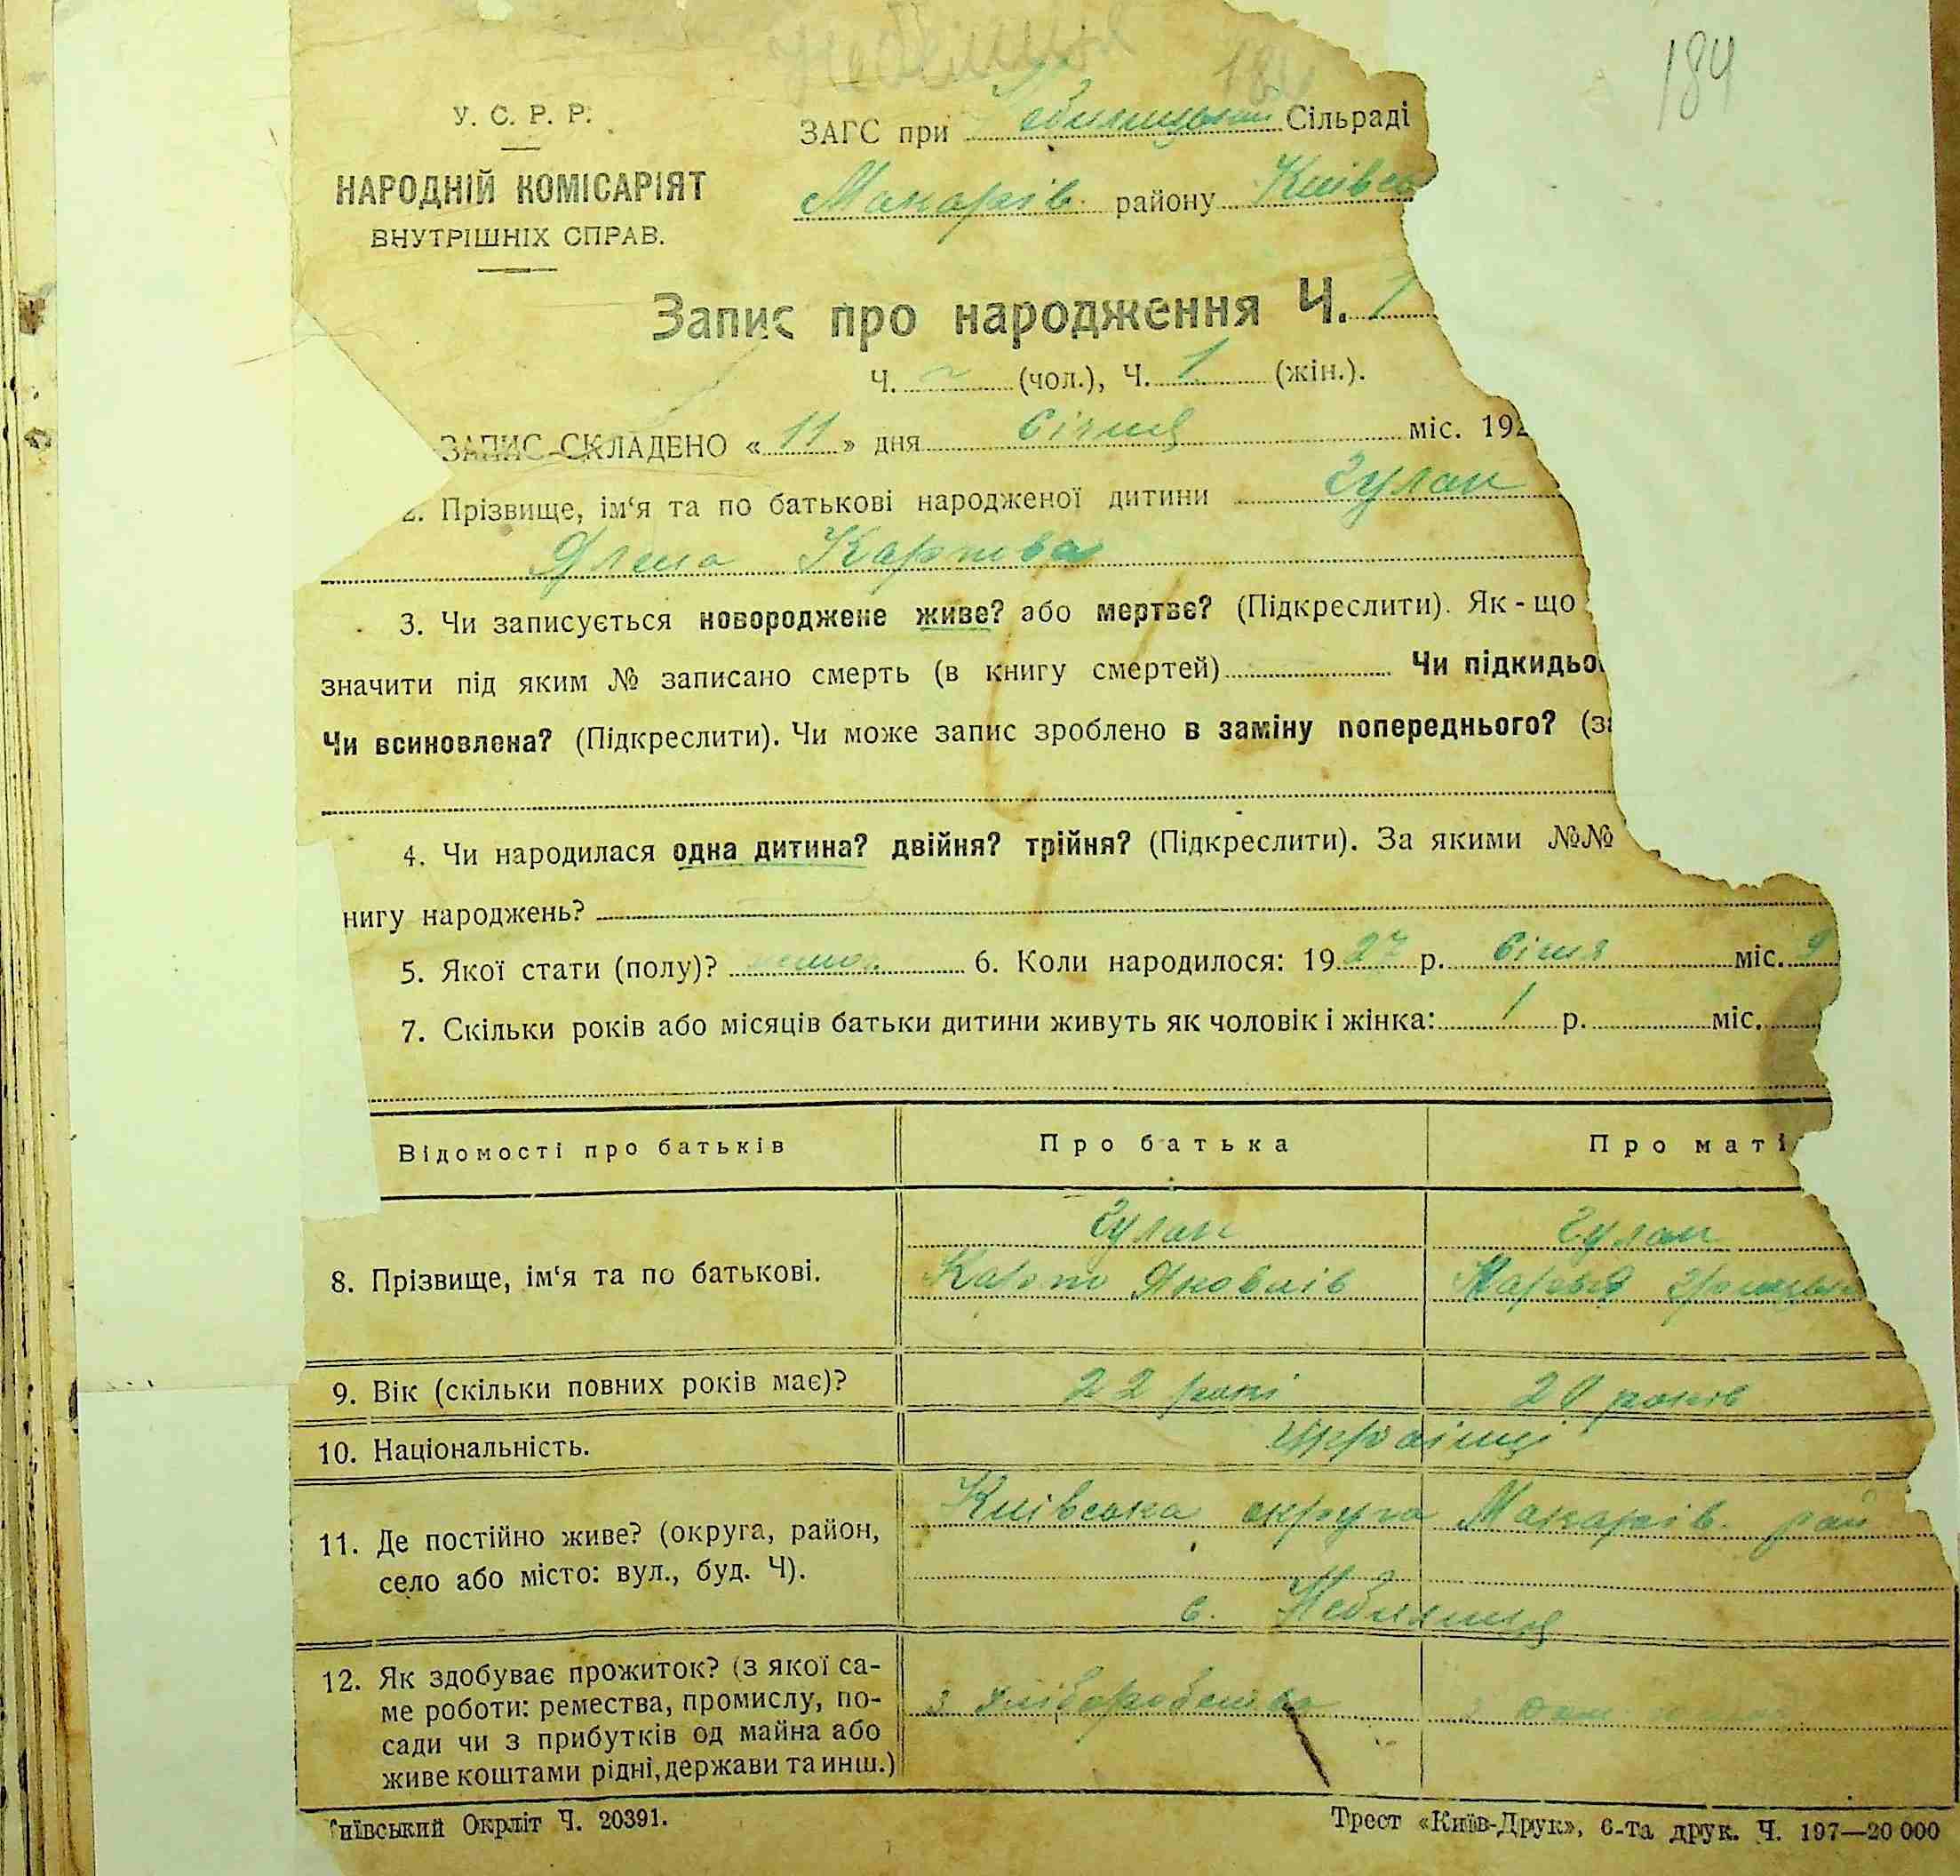 184
У. С. Р. Р.
НАРОДНІЙ КОМІСАРІЯТ
ВНУТРІШНІХ СПРАВ.
ЗАГС при Сільраді
Макарів. району Київсь
Запис про народження Ч. 1
Ч. (чол.), Ч. 1 (жін.).
ЗАПИС СКЛАДЕНО « 11 » дня Січня міс. 192
2. Прізвище, ім‘я та по батькові народженої дитини Гулак
Карпова
3. Чи записується новороджене живе? або мертве? (Підкреслити). Як-що
значити під яким № записано смерть (в книгу смертей) Чи підкидьо
Чи всиновлена? (Підкреслити). Чи може запис зроблено в заміну попереднього? (за
4. Чи народилася одна дитина? двійня? трійня? (Підкреслити). За якими №№
нигу народжень?
5. Якої стати (полу)? 6. Коли народилося: 19 27 р. Січня міс. 9
7. Скільки років або місяців батьки дитини живуть як чоловік і жінка: 1 р. міс.
Відомості про батьків Про батька Про маті
8. Прізвище, ім‘я та по батькові. Гулак Гулак
Карпо Яковлів Марья
9. Вік (скільки повних років має)? 22 рокі 20 років
10. Національність. Українці
11. Де постійно живе? (округа, район,
село або місто: вул., буд. Ч). Київська округа Макарів. рай
с. Небилиця
12. Як здобуває прожиток? (з якої са-
ме роботи: ремества, промислу, по-
сади чи з прибутків од майна або
живе коштами рідні, держави та инш.) з хліборобства
иївський Окрліт Ч. 20391. Трест «Київ-Друк», 6-та друк. Ч. 197—20 000